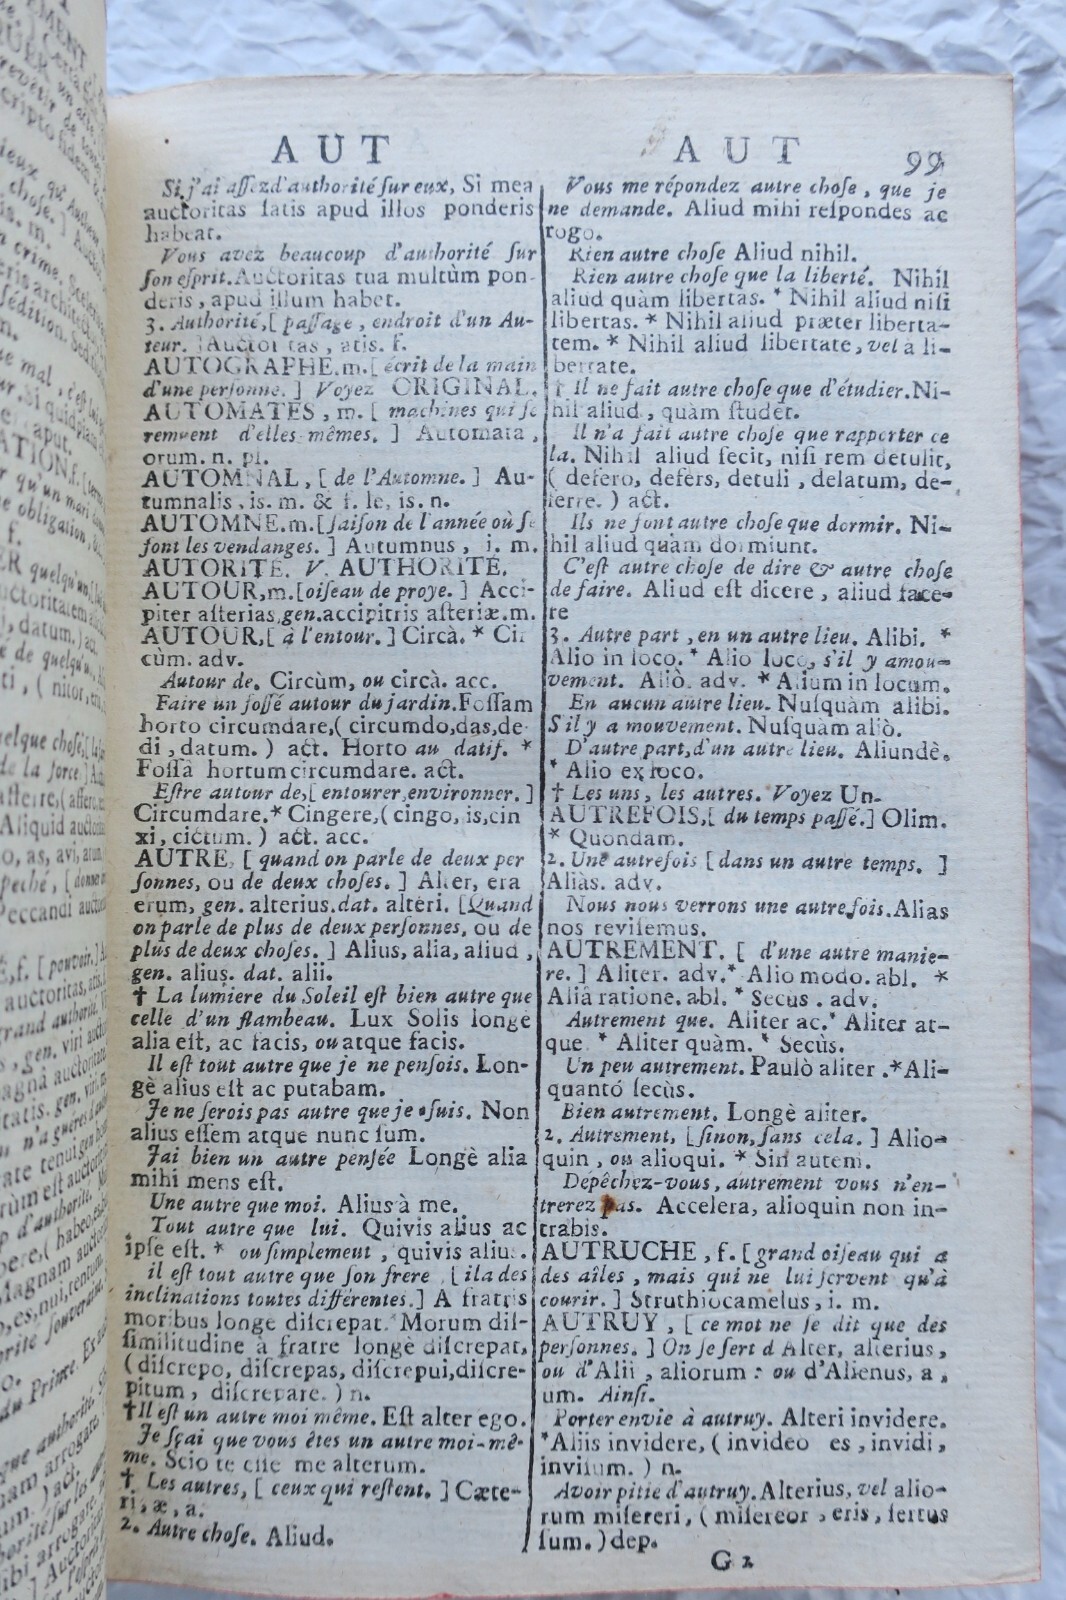 AUT
AUT
99
Si j'ai assez d'authorité sur eux, Si mea
auctoritas satis apud illos ponderis
habeat.
Vous avez beaucoup d'authorité sur
son esprit. Auctoritas tua multùm pon-
deris, apud illum habet.
3. Authorité, [ passage, endroit d'un Au-
teur. ] Auctoritas, atis. f.
AUTOGRAPHE. m. [ écrit de la main
d'une personne. ] Voyez ORIGINAL.
AUTOMATES, m. [ machines qui se
remuent d'elles-mêmes. ] Automata,
orum. n. pl.
AUTOMNAL, [ de l'Automne. ] Au-
tumnalis, is. m. & f. le, is. n.
AUTOMNE. m. [ saison de l'année où se
font les vendanges. ] Autumnus, i. m.
AUTORITÉ. V. AUTHORITÉ.
AUTOUR, m. [ oiseau de proye. ] Acci-
piter asterias, gen. accipitris asteriæ. m.
AUTOUR, [ à l'entour. ] Circà. * Cir
cùm. adv.
Autour de. Circùm, ou circà. acc.
Faire un fossé autour du jardin. Fossam
horto circumdare, ( circumdo, das, de-
di, datum. ) act. Horto au datif. *
Fossâ hortum circumdare. act.
Estre autour de, [ entourer, environner. ]
Circumdare. * Cingere, ( cingo, is, cin
xi, cictum. ) act. acc.
AUTRE, [ quand on parle de deux per
sonnes, ou de deux choses. ] Alter, era
erum, gen. alterius. dat. alteri. [ Quand
on parle de plus de deux personnes, ou de
plus de deux choses. ] Alius, alia, aliud,
gen. alius. dat. alii.
† La lumiere du Soleil est bien autre que
celle d'un flambeau. Lux Solis longè
alia est, ac facis, ou atque facis.
Il est tout autre que je ne pensois. Lon-
gè alius est ac putabam.
Je ne serois pas autre que je suis. Non
alius essem atque nunc sum.
J'ai bien un autre pensée Longè alia
mihi mens est.
Une autre que moi. Alius à me.
Tout autre que lui. Quivis alius ac
ipse est. * ou simplement, quivis alius.
il est tout autre que son frere, [ il a des
inclinations toutes différentes. ] A fratris
moribus longè discrepat. Morum dis-
similitudine à fratre longè discrepat,
( discrepo, discrepas, discrepui, discre-
pitum, discrepare. ) n.
† Il est un autre moi même. Est alter ego.
Je sçai que vous êtes un autre moi-mê-
me. Scio te esse me alterum.
† Les autres, [ ceux qui restent. ] Cæte-
ri, æ, a.
2. Autre chose. Aliud.
Vous me répondez autre chose, que je
ne demande. Aliud mihi respondes ac
rogo.
Rien autre chose Aliud nihil.
Rien autre chose que la liberté. Nihil
aliud quàm libertas. * Nihil aliud nisi
libertas. * Nihil aliud præter liberta-
tem. * Nihil aliud libertate, vel à li-
bertate.
† Il ne fait autre chose que d'étudier. Ni-
hil aliud, quàm studet.
Il n'a fait autre chose que rapporter ce
la. Nihil aliud fecit, nisi rem detulit,
( defero, defers, detuli, delatum, de-
ferre. ) act.
Ils ne font autre chose que dormir. Ni-
hil aliud quàm dormiunt.
C'est autre chose de dire & autre chose
de faire. Aliud est dicere, aliud face-
re
3. Autre part, en un autre lieu. Alibi. *
Alio in loco. * Alio loco, s'il y a mou-
vement. Aliò. adv. * Alium in locum.
En aucun autre lieu. Nusquàm alibi.
S'il y a mouvement. Nusquàm aliò.
D'autre part, d'un autre lieu. Aliundè.
* Alio ex loco.
† Les uns, les autres. Voyez Un.
AUTREFOIS, [ du temps passé. ] Olim.
* Quondam.
2. Une autrefois [ dans un autre temps. ]
Aliàs. adv.
Nous nous verrons une autre fois. Alias
nos revisemus.
AUTREMENT. [ d'une autre manie-
re. ] Aliter. adv. * Alio modo. abl. *
Aliâ ratione. abl. * Secus. adv.
Autrement que. Aliter ac. * Aliter at-
que * Aliter quàm. * Secùs.
Un peu autrement. Paulò aliter. * Ali-
quantó secùs.
Bien autrement. Longè aliter.
2. Autrement, [ sinon, sans cela. ] Alio-
quin, ou alioqui. * Sin autem.
Dépêchez-vous, autrement vous n'en-
trerez pas. Accelera, alioquin non in-
trabis.
AUTRUCHE, f. [ grand oiseau qui a
des aîles, mais qui ne lui servent qu'à
courir. ] Struthiocamelus, i. m.
AUTRUY, [ ce mot ne se dit que des
personnes. ] On se sert d Alter, alterius,
ou d'Alii, aliorum : ou d'Alienus, a,
um. Ainsi.
Porter envie à autruy. Alteri invidere.
* Aliis invidere, ( invideo es, invidi,
invisum. ) n.
Avoir pitie d'autruy. Alterius, vel alio-
rum misereri, ( misereor, eris, sertus
sum. ) dep.
G 2